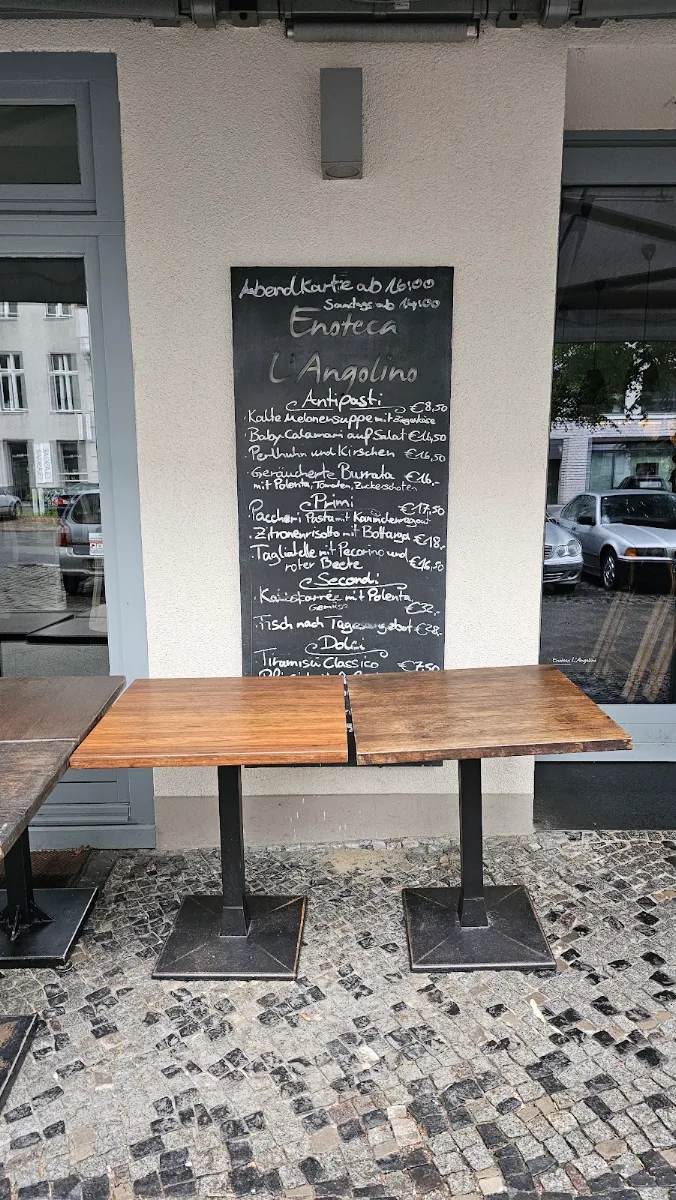 Abendkarte ab 16:00
Samstags ab 14:00
Enoteca
L'Angolino
Antipasti
Kalte Melonensuppe mit €8,50
Baby Calamari auf Salat €16,50
Perlhuhn und Kirschen €16,50
Geräucherte Burrata €16,-
mit Polenta, Tomaten, Zuckerschoten
Primi
€17,50
Paccheri Pasta mit Kaninchenragout
Zitronenrisotto mit Bottarga €18,-
Tagliatelle mit Pecorino und
roter Beete €16,50
Secondi
mit Polenta
Gemüse €32,-
Fisch nach Tagesangebot €28,-
Dolci
Tiramisu Classico €7,50
Enoteca L'Angolino